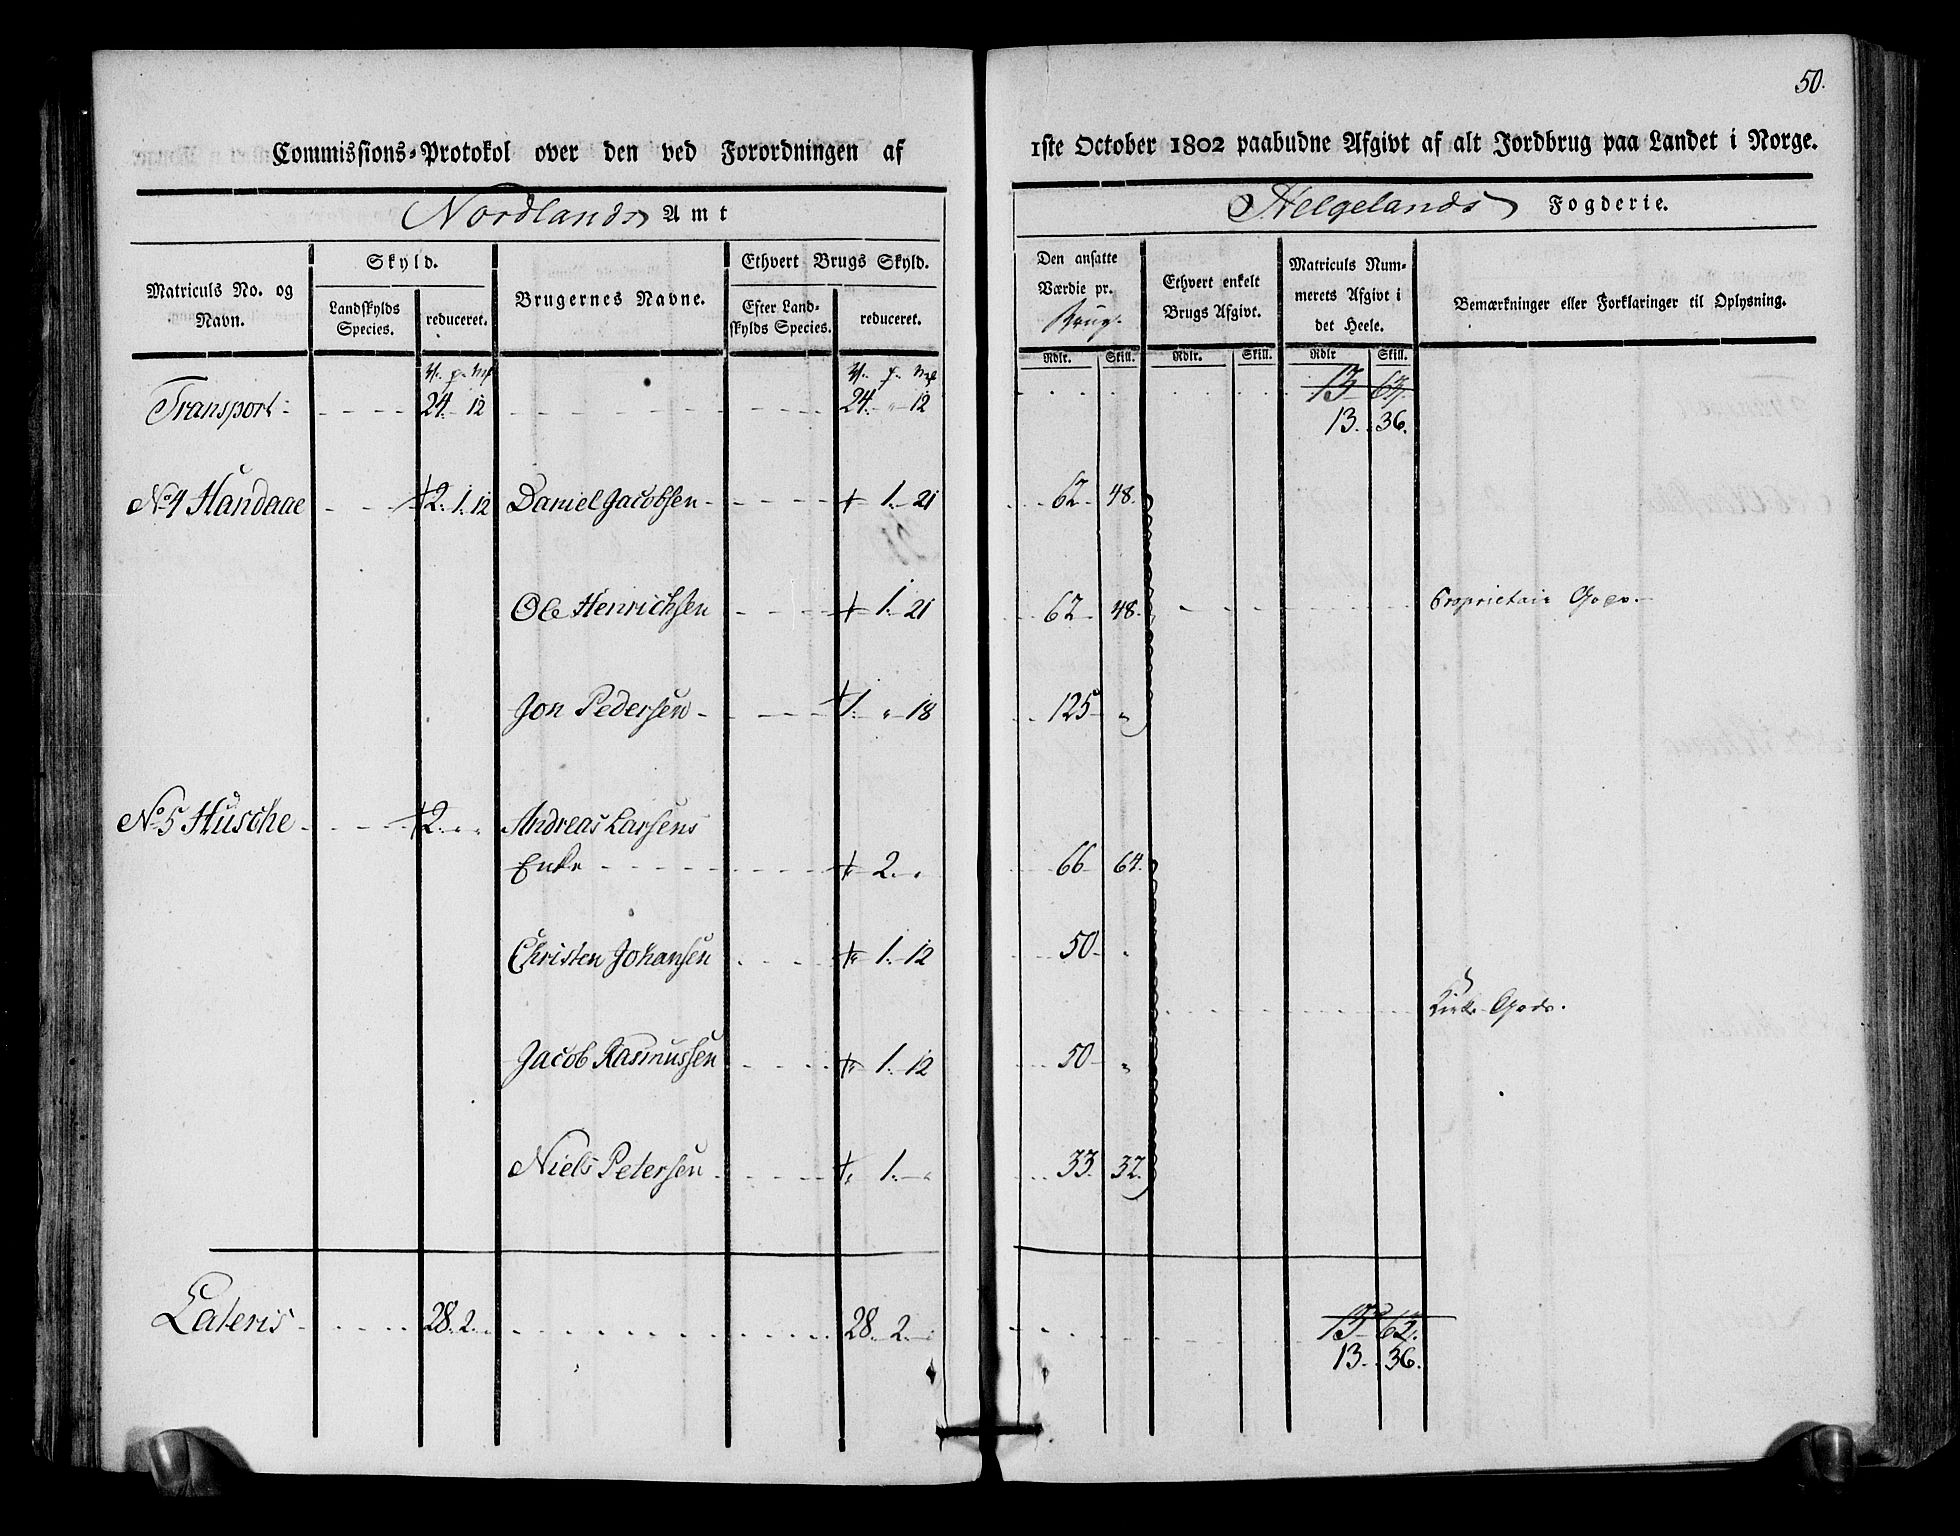 50.
Commissions-Protokol over den ved Forordningen af 1ste October 1802 paabudne Afgivt af alt Jordbrug paa Landet i Norge.
Nordlands Amt Helgelands Fogderie.
Matriculs No. og Navn.
Skyld.
Landskylds Species.
reduceret.
Brugernes Navne.
Ethvert Brugs Skyld.
Efter Landskylds Species.
reduceret.
Den ansatte Værdie pr. Brug.
Rdlr. Skill.
Ethvert enkelt Brugs Afgivt.
Rdlr. Skill.
Matriculs Nummerets Afgivt i det Heele.
Rdlr Skill.
Bemærkninger eller Forklaringer til Oplysning.
Transport 24. 12 24. " 12 13 64.
13. 36.
No 4 Handaae 2. 1. 12 Daniel Jacobsen 1. 21 62 48.
Ole Henrichsen 1. 21 62 48. Proprietair Gods.
Jon Pedersen 1. " 18 125 "
No 5 Husche 2. " " Andreas Larsens
Enke 2. " 66 64.
Christen Johansen 1. 12 50 "
Kirke Gods.
Jacob Rasmussen 1. 12 50 "
Niels Petersen 1. " 33. 32.
Lateris 28. 2. " 28. 2. " 13 64.
13. 36.